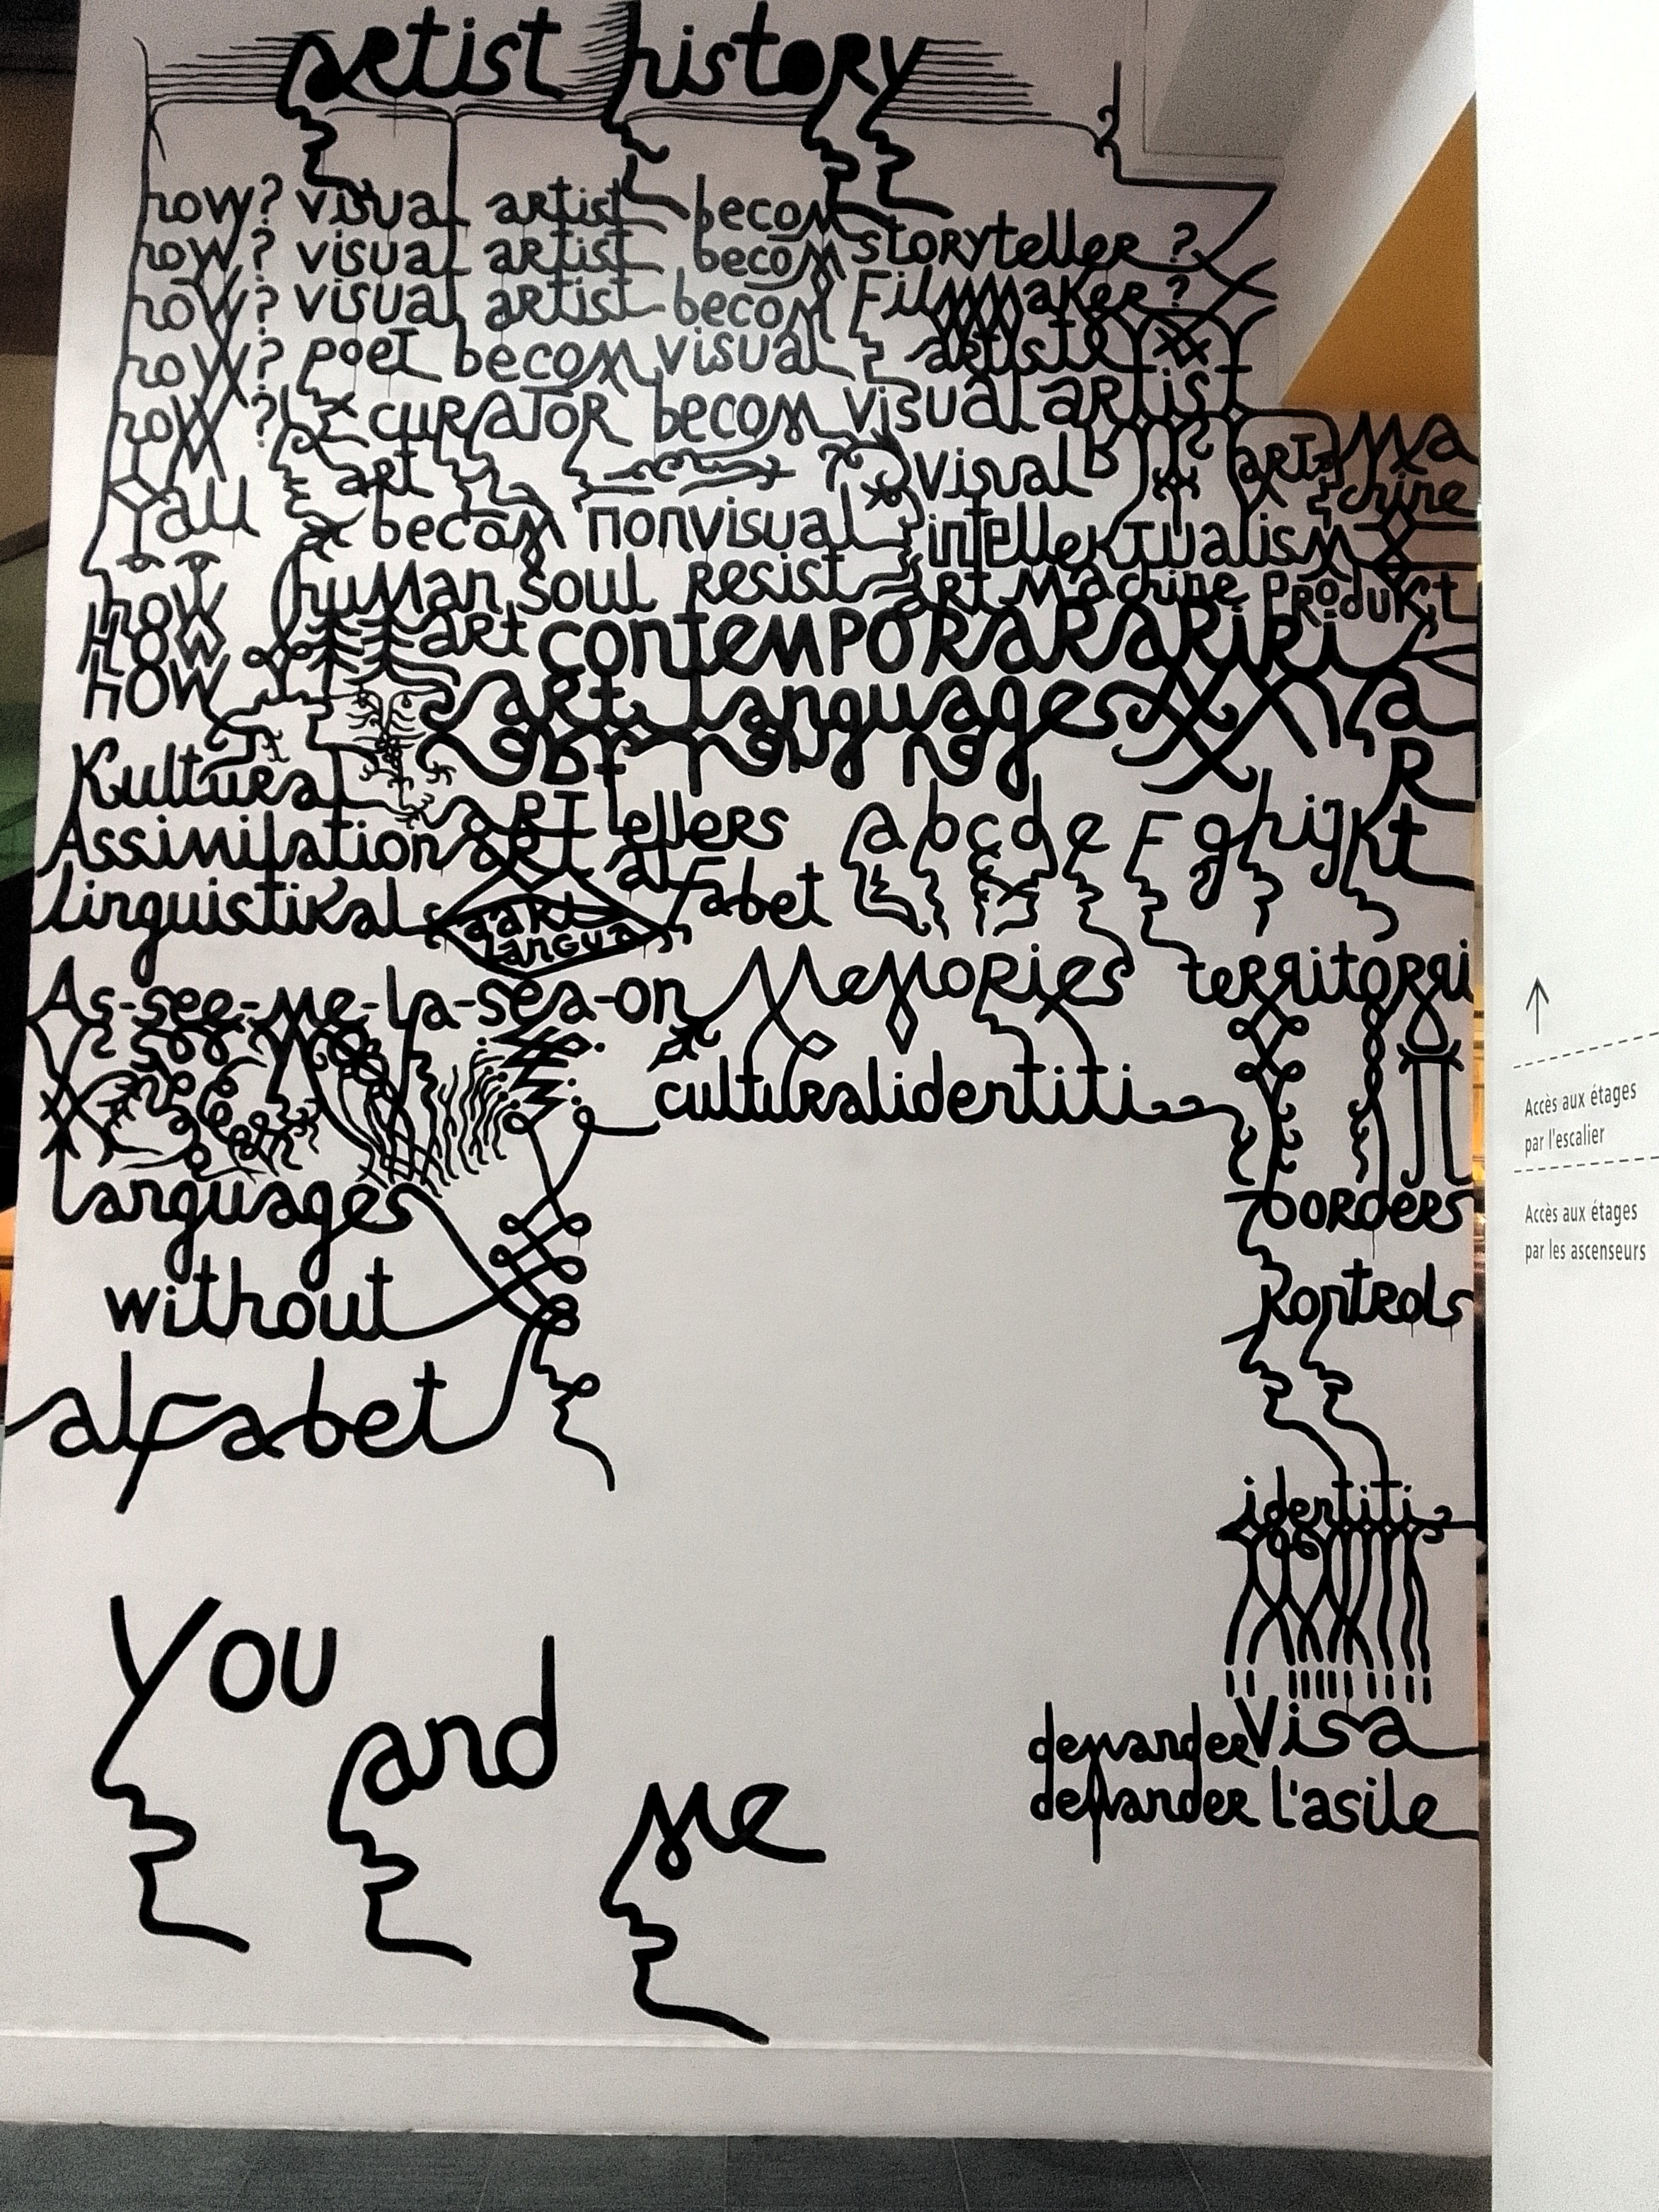 artist history
how? visual artist becom storyteller ?
how? visual artist becom Filmmaker ?
how? visual artist becom artiste
how? poet becom visual
how ? curator becom visual artist
art visual art Machine
You all becom nonvisual intellektualism
how human soul resist art machine produkt
How art contemporararariki
How art languages
Kultural art letters a b c d e F g h i j k t
Assimilation art alfabet
linguistikal art langua
As-see-me-la-sea-on Memories territorri
culturalidentiti
languages borders
without kontrols
alfabet
identiti
You
and
me
demander Visa
demander l'asile
Accès aux étages
par l'escalier
Accès aux étages
par les ascenseurs